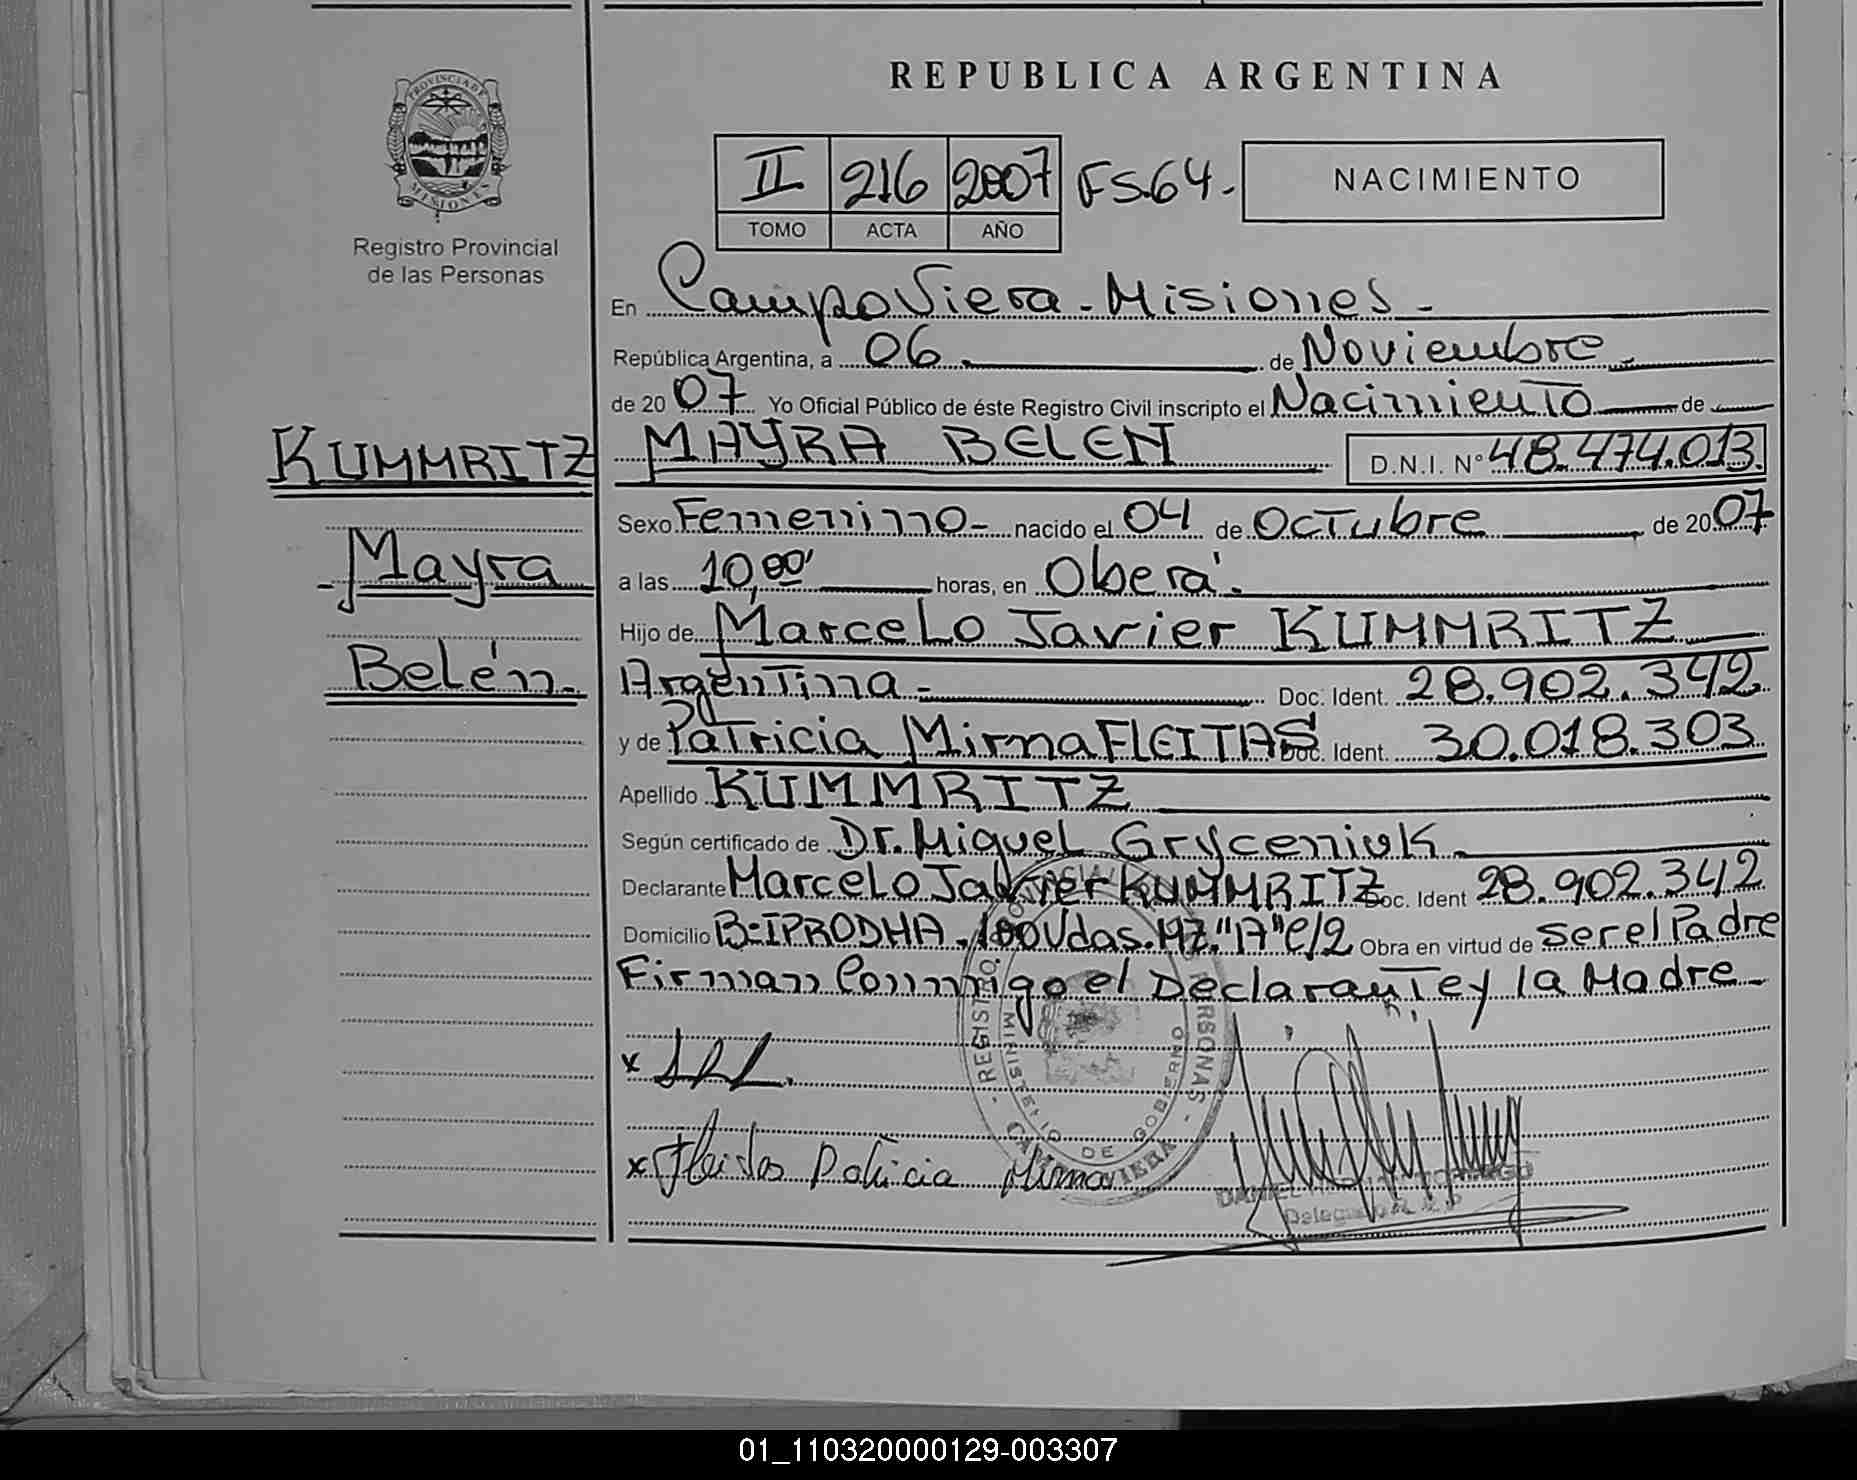 REPUBLICA ARGENTINA
PROVINCIA DE
MISIONES
Registro Provincial
de las Personas
II 216 2007 FS.64.-
TOMO ACTA AÑO
NACIMIENTO
En Campo Viera - Misiones. -
República Argentina, a 06. de Noviembre.
de 2007 Yo Oficial Público de éste Registro Civil inscripto el Nacimiento de
KUMMRITZ
Mayra
Belén.
MAYRA BELEN D.N.I. N° 48.474.013.
Sexo Femenino- nacido el 04 de Octubre de 2007
a las 10,00' horas, en Oberá.
Hijo de Marcelo Javier KUMMRITZ
Argentina - Doc. Ident. 28.902.342
y de Patricia Mirna FLEITAS Doc. Ident. 30.018.303
Apellido KUMMRITZ
Según certificado de Dr. Miguel Gryceniuk.
Declarante Marcelo Javier KUMMRITZ Doc. Ident 28.902.342
Domicilio B=IPRODHA. 100Vdas. MZ."A" C/2 Obra en virtud de ser el Padre
Firman Conmigo el Declarante y la Madre
x
x Fleitas Patricia Mirna
REGISTRO PERSONAS
MINISTERIO DE GOBIERNO
CAMPO VIERA
01_110320000129-003307